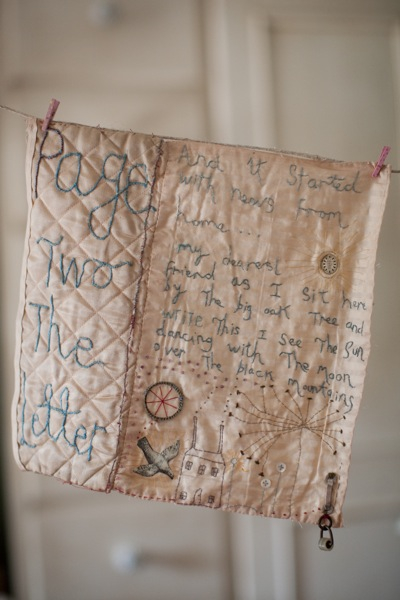 Page
Two
The
letter
And it Started
with news from
home....
my dearest
friend as I sit here
by the big oak Tree and
write This I see The Sun
dancing with The moon
over The black mountains